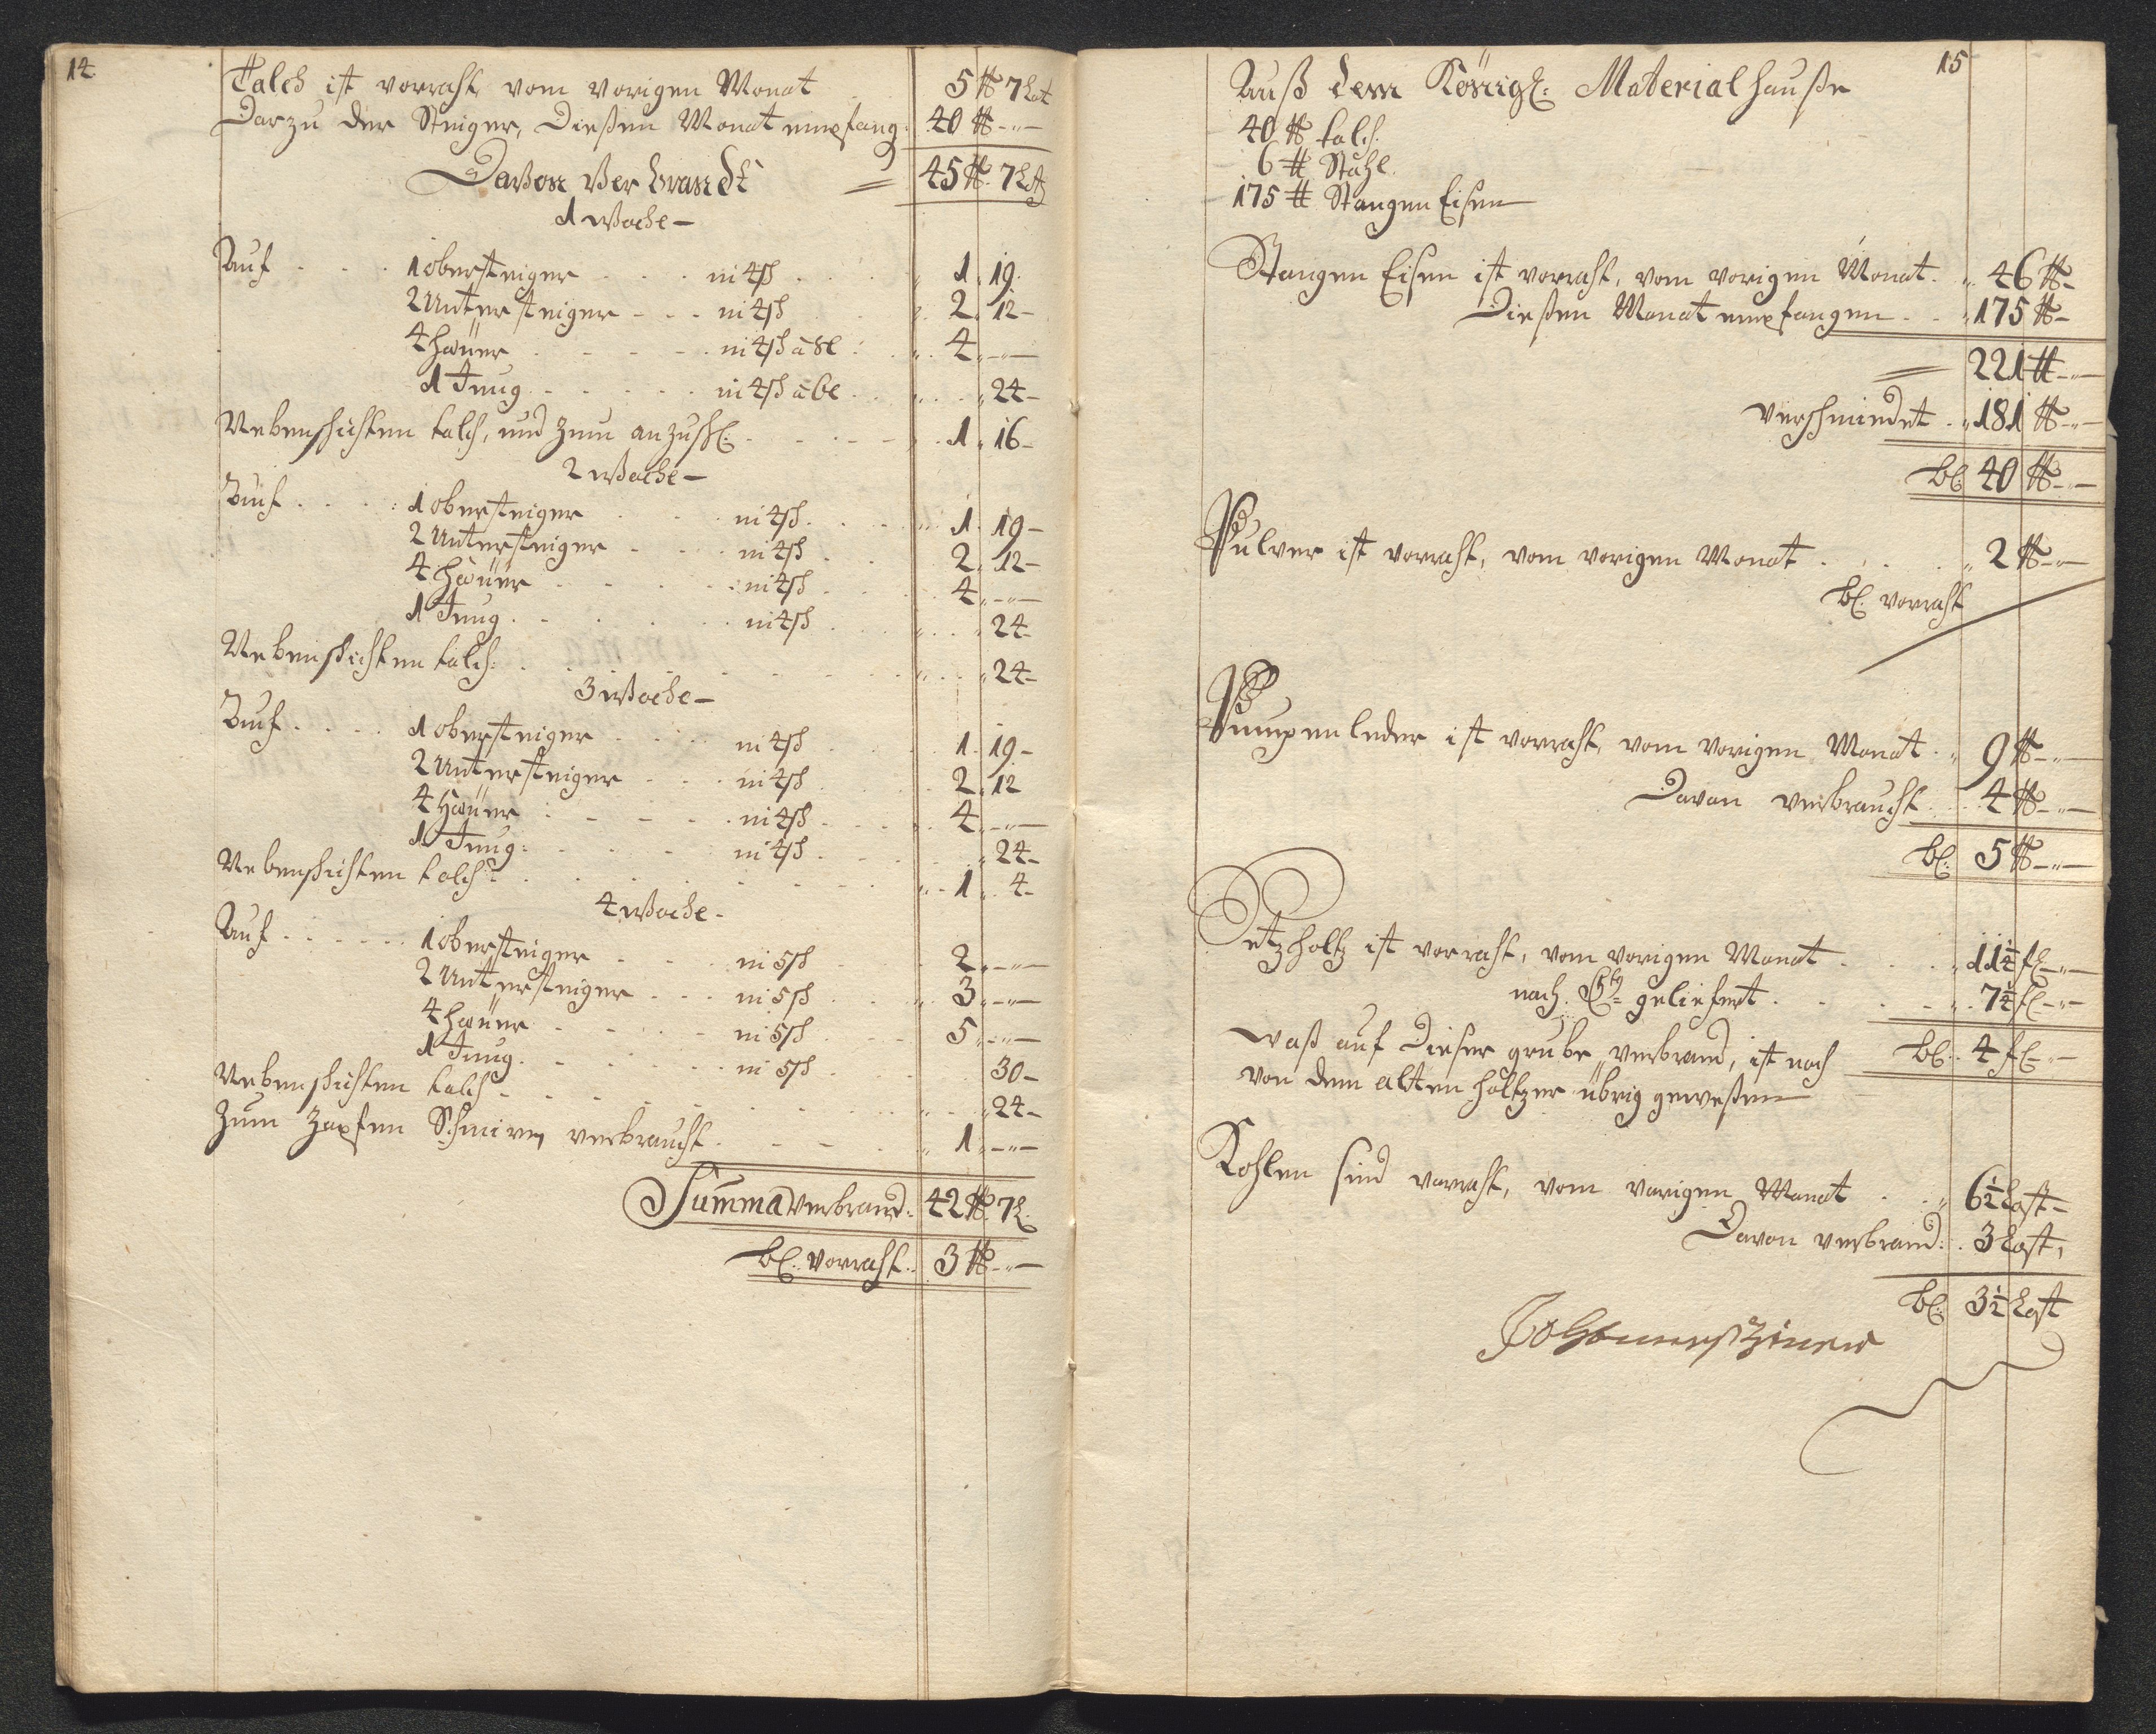 14
Talch ist vorraht vom vorigen Monat . 5 ℔ 7 Lot
Darzu der Steiger, Dießen Monat empfang: 40 ℔ -"-
Davon Verbrandt = 45 ℔. 7 Lot
1 Woche -
Auf . . . 1 obersteiger . . . in 4 sch . . . 1. 19.
2 Untersteiger - - - in 4 sch . . 2. 12 -
4 Heuer . - - - . in 4 sch â 8 l : . 4 " -"-
1 Jung . - - - - in 4 sch â 6 l . . . " 24 -
Nebenschichten talch, und zum anzuschl: . - - . 1 " 16 -
2 Woche -
Auf . . . : 1 obersteiger . . . in 4 sch . . . 1. 19 -
2 Untersteiger - . . in 4 sch . . 2. 12 -
4 Heuer . - - - . in 4 sch . . . 4 " -"-
1 Jung . - . . . in 4 sch . . . " 24 -
Nebenschichten talch: . . - - - - . . " 24 -
3 Woche -
Auf . . . . 1 obersteiger . - . . in 4 sch . . 1. 19 -
2 Untersteiger - - . in 4 sch . . . 2. 12
4 Heuer : - - - . in 4 sch . . . 4 " -"-
1 Jung: . - - . in 4 sch . . . " 24 -
Nebenschichten talch: . . . . - . . 1 " 4 -
4 Woche -
Auf . . . . . 1 obersteiger . . - in 5 sch . . 2 " -"-
2 Untersteiger . . - in 5 sch . . . 3 " -"-
4 Heuer . - - . - in 5 sch . . . 5 " -"-
1 Jung . . - . . in 5 sch . . . 30 -
Nebenschichten talch - . . - - . . . " 24 -
Zum Zapfen Schmiren verbraucht . - - . " 1 " -"-
Summa verbrand: 42 ℔. 7 L.
bl: vorraht: 3 ℔ -"-
15
Auß dem Königl: Materialhauße
40 ℔ talch.
6 ℔ Stahl.
175 ℔ Stangen Eisen
Stangen Eisen ist vorraht, vom vorigen Monat . " 46 ℔ -
Dießen Monat empfangen . . " 175 ℔ -
= 221 ℔ -"-
verschmiedet . " 181 ℔ -"-
bl: 40 ℔ -"-
Pulver ist vorraht, vom vorigen Monat . . . . " 2 ℔ -"-
bl: vorraht
Pumpenleder ist vorraht, vom vorigen Monat . " 9 ℔ -"-
Davon verbraucht . . 4 ℔ -"-
bl: 5 ℔ -"-
Setzholtz ist vorraht, vom vorigen Monat . . . " 11½ fl -"-
nach geliefert . . - . " 7½ fl -"-
waß auf Dieser grube verbrand, ist noch bl: 4 fl -"-
von dem alten holtzer übrig geweßen
Kohlen sind vorraht, vom vorigen Monat . . " 6½ Last -
Davon verbrand: . 3 Last,
bl: 3½ Last